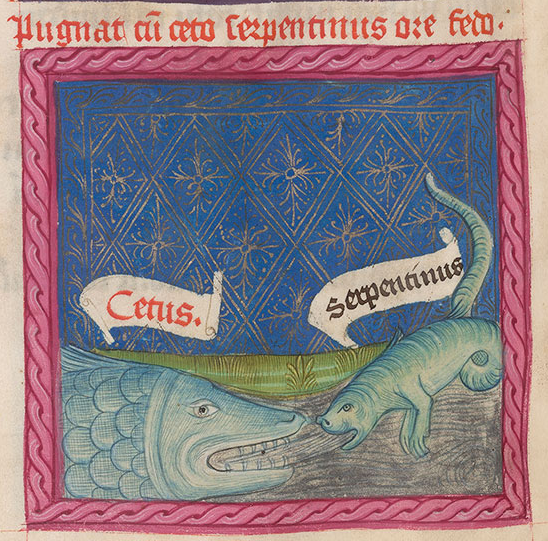 Pugnat cū ceto serpentinus ore fedo.
Cetus.
Serpentinus